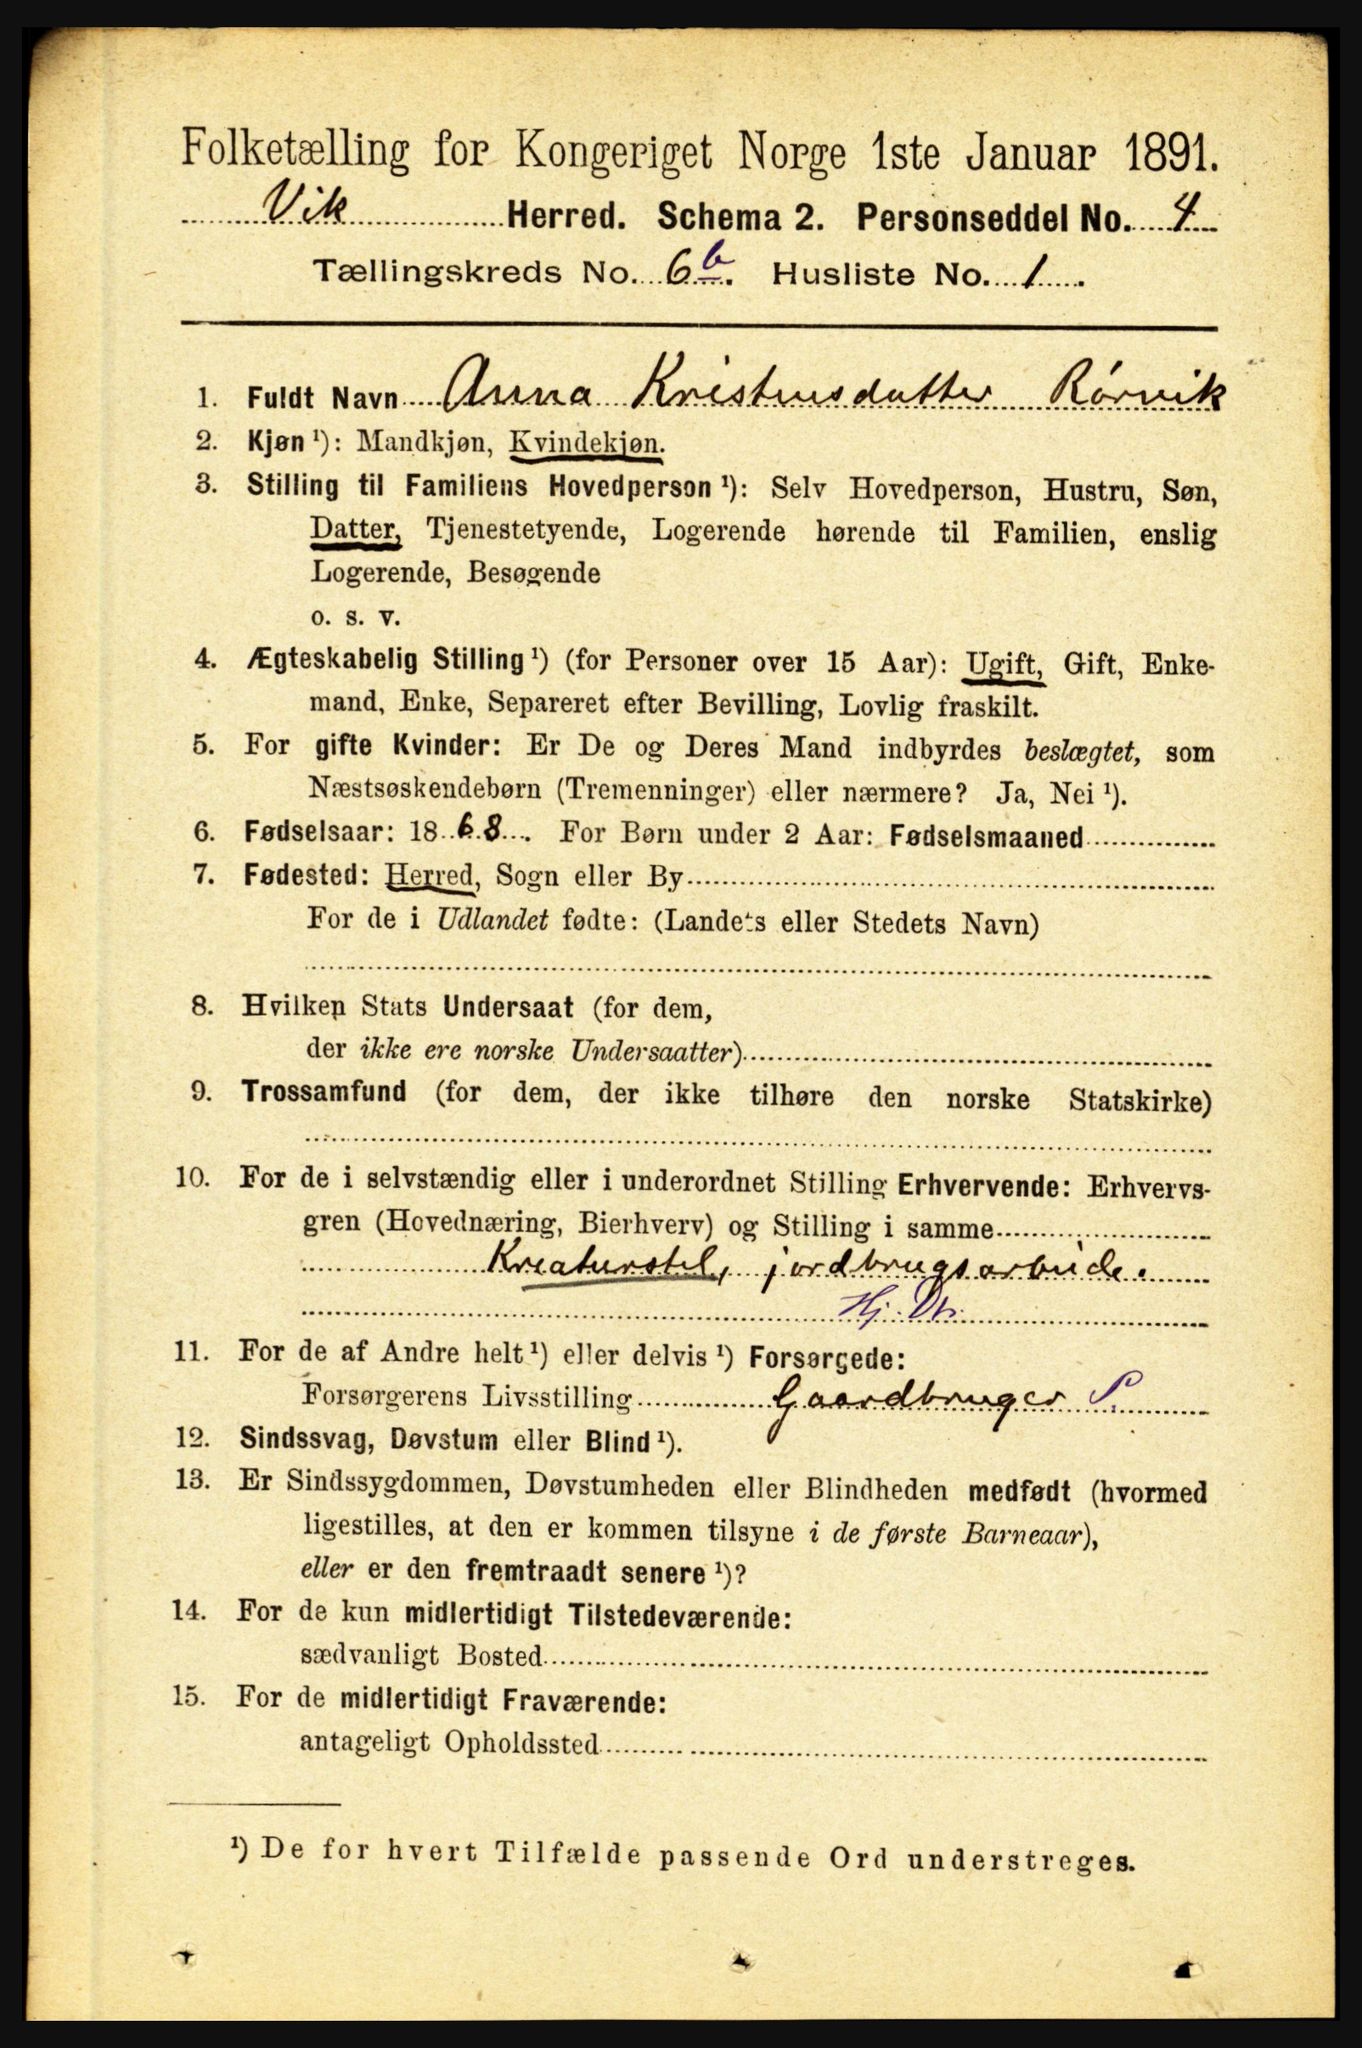 Folketælling for Kongeriget Norge 1ste Januar 1891.
Vik Herred. Schema 2. Personseddel No. 4
Tællingskreds No. 6b. Husliste No. 1.
1. Fuldt Navn Anna Kristensdatter Rørvik
2. Kjøn ¹): Mandkjøn, Kvindekjøn.
3. Stilling til Familiens Hovedperson ¹): Selv Hovedperson, Hustru, Søn,
Datter, Tjenestetyende, Logerende hørende til Familien, enslig
Logerende, Besøgende
o. s. v.
4. Ægteskabelig Stilling ¹) (for Personer over 15 Aar): Ugift, Gift, Enke-
mand, Enke, Separeret efter Bevilling, Lovlig fraskilt.
5. For gifte Kvinder: Er De og Deres Mand indbyrdes beslægtet, som
Næstsøskendebørn (Tremenninger) eller nærmere? Ja, Nei ¹).
6. Fødselsaar: 1868. For Børn under 2 Aar: Fødselsmaaned
7. Fødested: Herred, Sogn eller By
For de i Udlandet fødte: (Landets eller Stedets Navn)
8. Hvilken Stats Undersaat (for dem,
der ikke ere norske Undersaatter)
9. Trossamfund (for dem, der ikke tilhøre den norske Statskirke)
10. For de i selvstændig eller i underordnet Stilling Erhvervende: Erhvervs-
gren (Hovednæring, Bierhverv) og Stilling i samme
Kreaturstel, jordbrugsarbeide.
Hj. Dtr.
11. For de af Andre helt ¹) eller delvis ¹) Forsørgede:
Forsørgerens Livsstilling Gaardbruger S.
12. Sindssvag, Døvstum eller Blind ¹).
13. Er Sindssygdommen, Døvstumheden eller Blindheden medfødt (hvormed
ligestilles, at den er kommen tilsyne i de første Barneaar),
eller er den fremtraadt senere ¹)?
14. For de kun midlertidigt Tilstedeværende:
sædvanligt Bosted
15. For de midlertidigt Fraværende:
antageligt Opholdssted
¹) De for hvert Tilfælde passende Ord understreges.